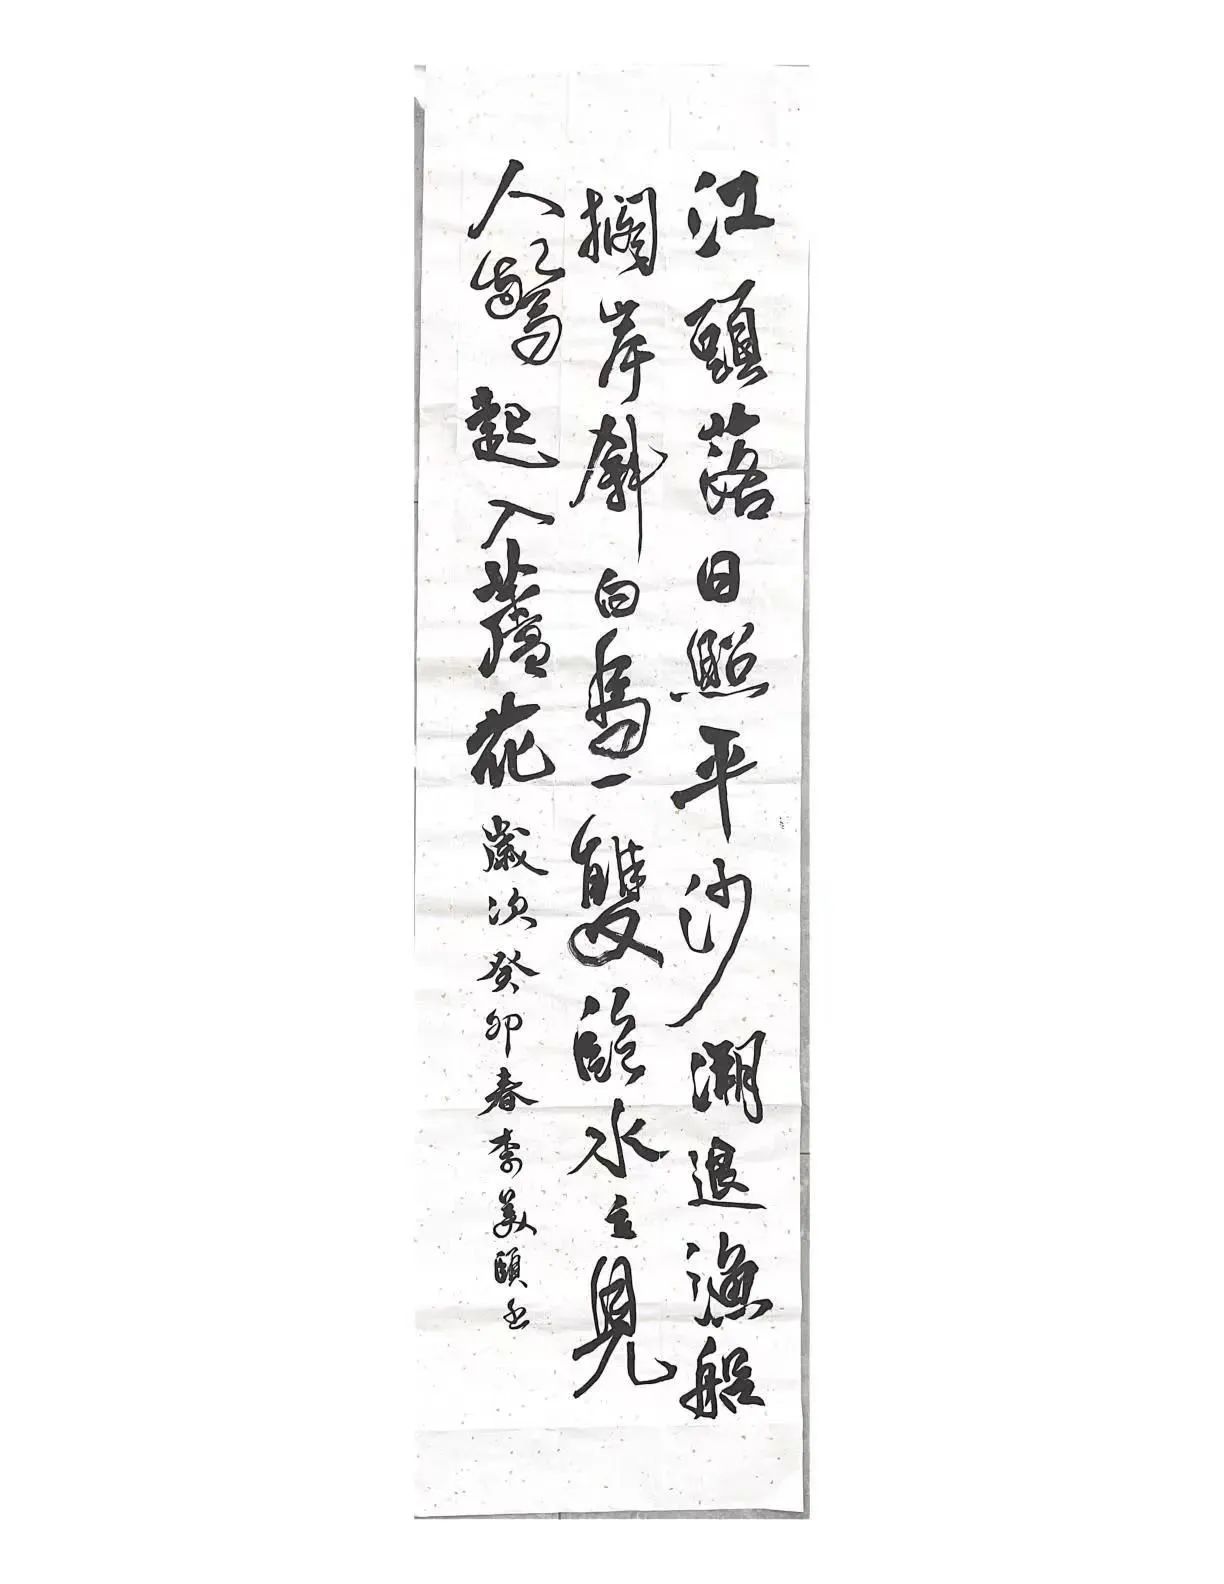 江頭落日照平沙潮退漁船
擱岸斜白鳥一雙臨水立見
人驚起入蘆花歲次癸卯春李美頤书